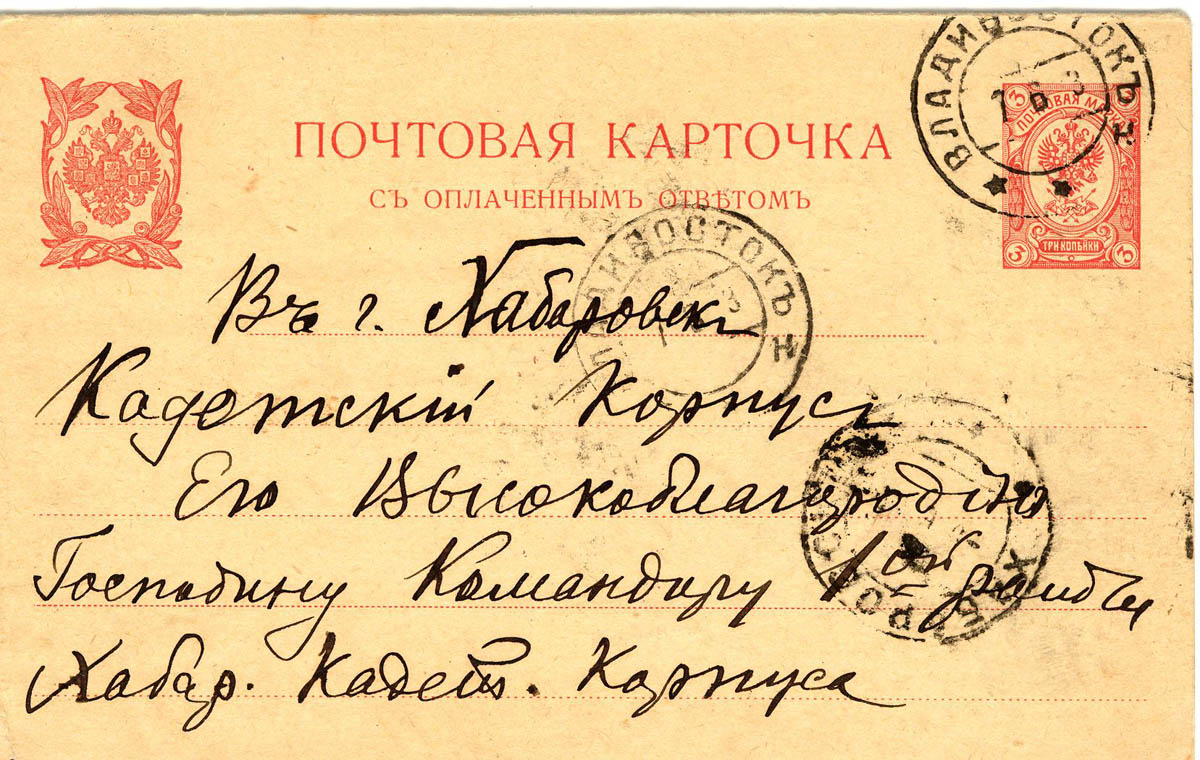 ПОЧТОВАЯ КАРТОЧКА
СЪ ОПЛАЧЕННЫМЪ ОТВѢТОМЪ
ВЛАДИВОСТОКЪ
7 6 3
3 3
ПОЧТОВАЯ МАРКА
ТРИ КОПѢЙКИ
3 3
ВЛАДИВОСТОКЪ
Въ г. Хабаровскъ
Кадетскій Корпусъ
Его Высокоблагородію
Господину Командиру 1ой роты
Хабар. Кадетс. Корпуса